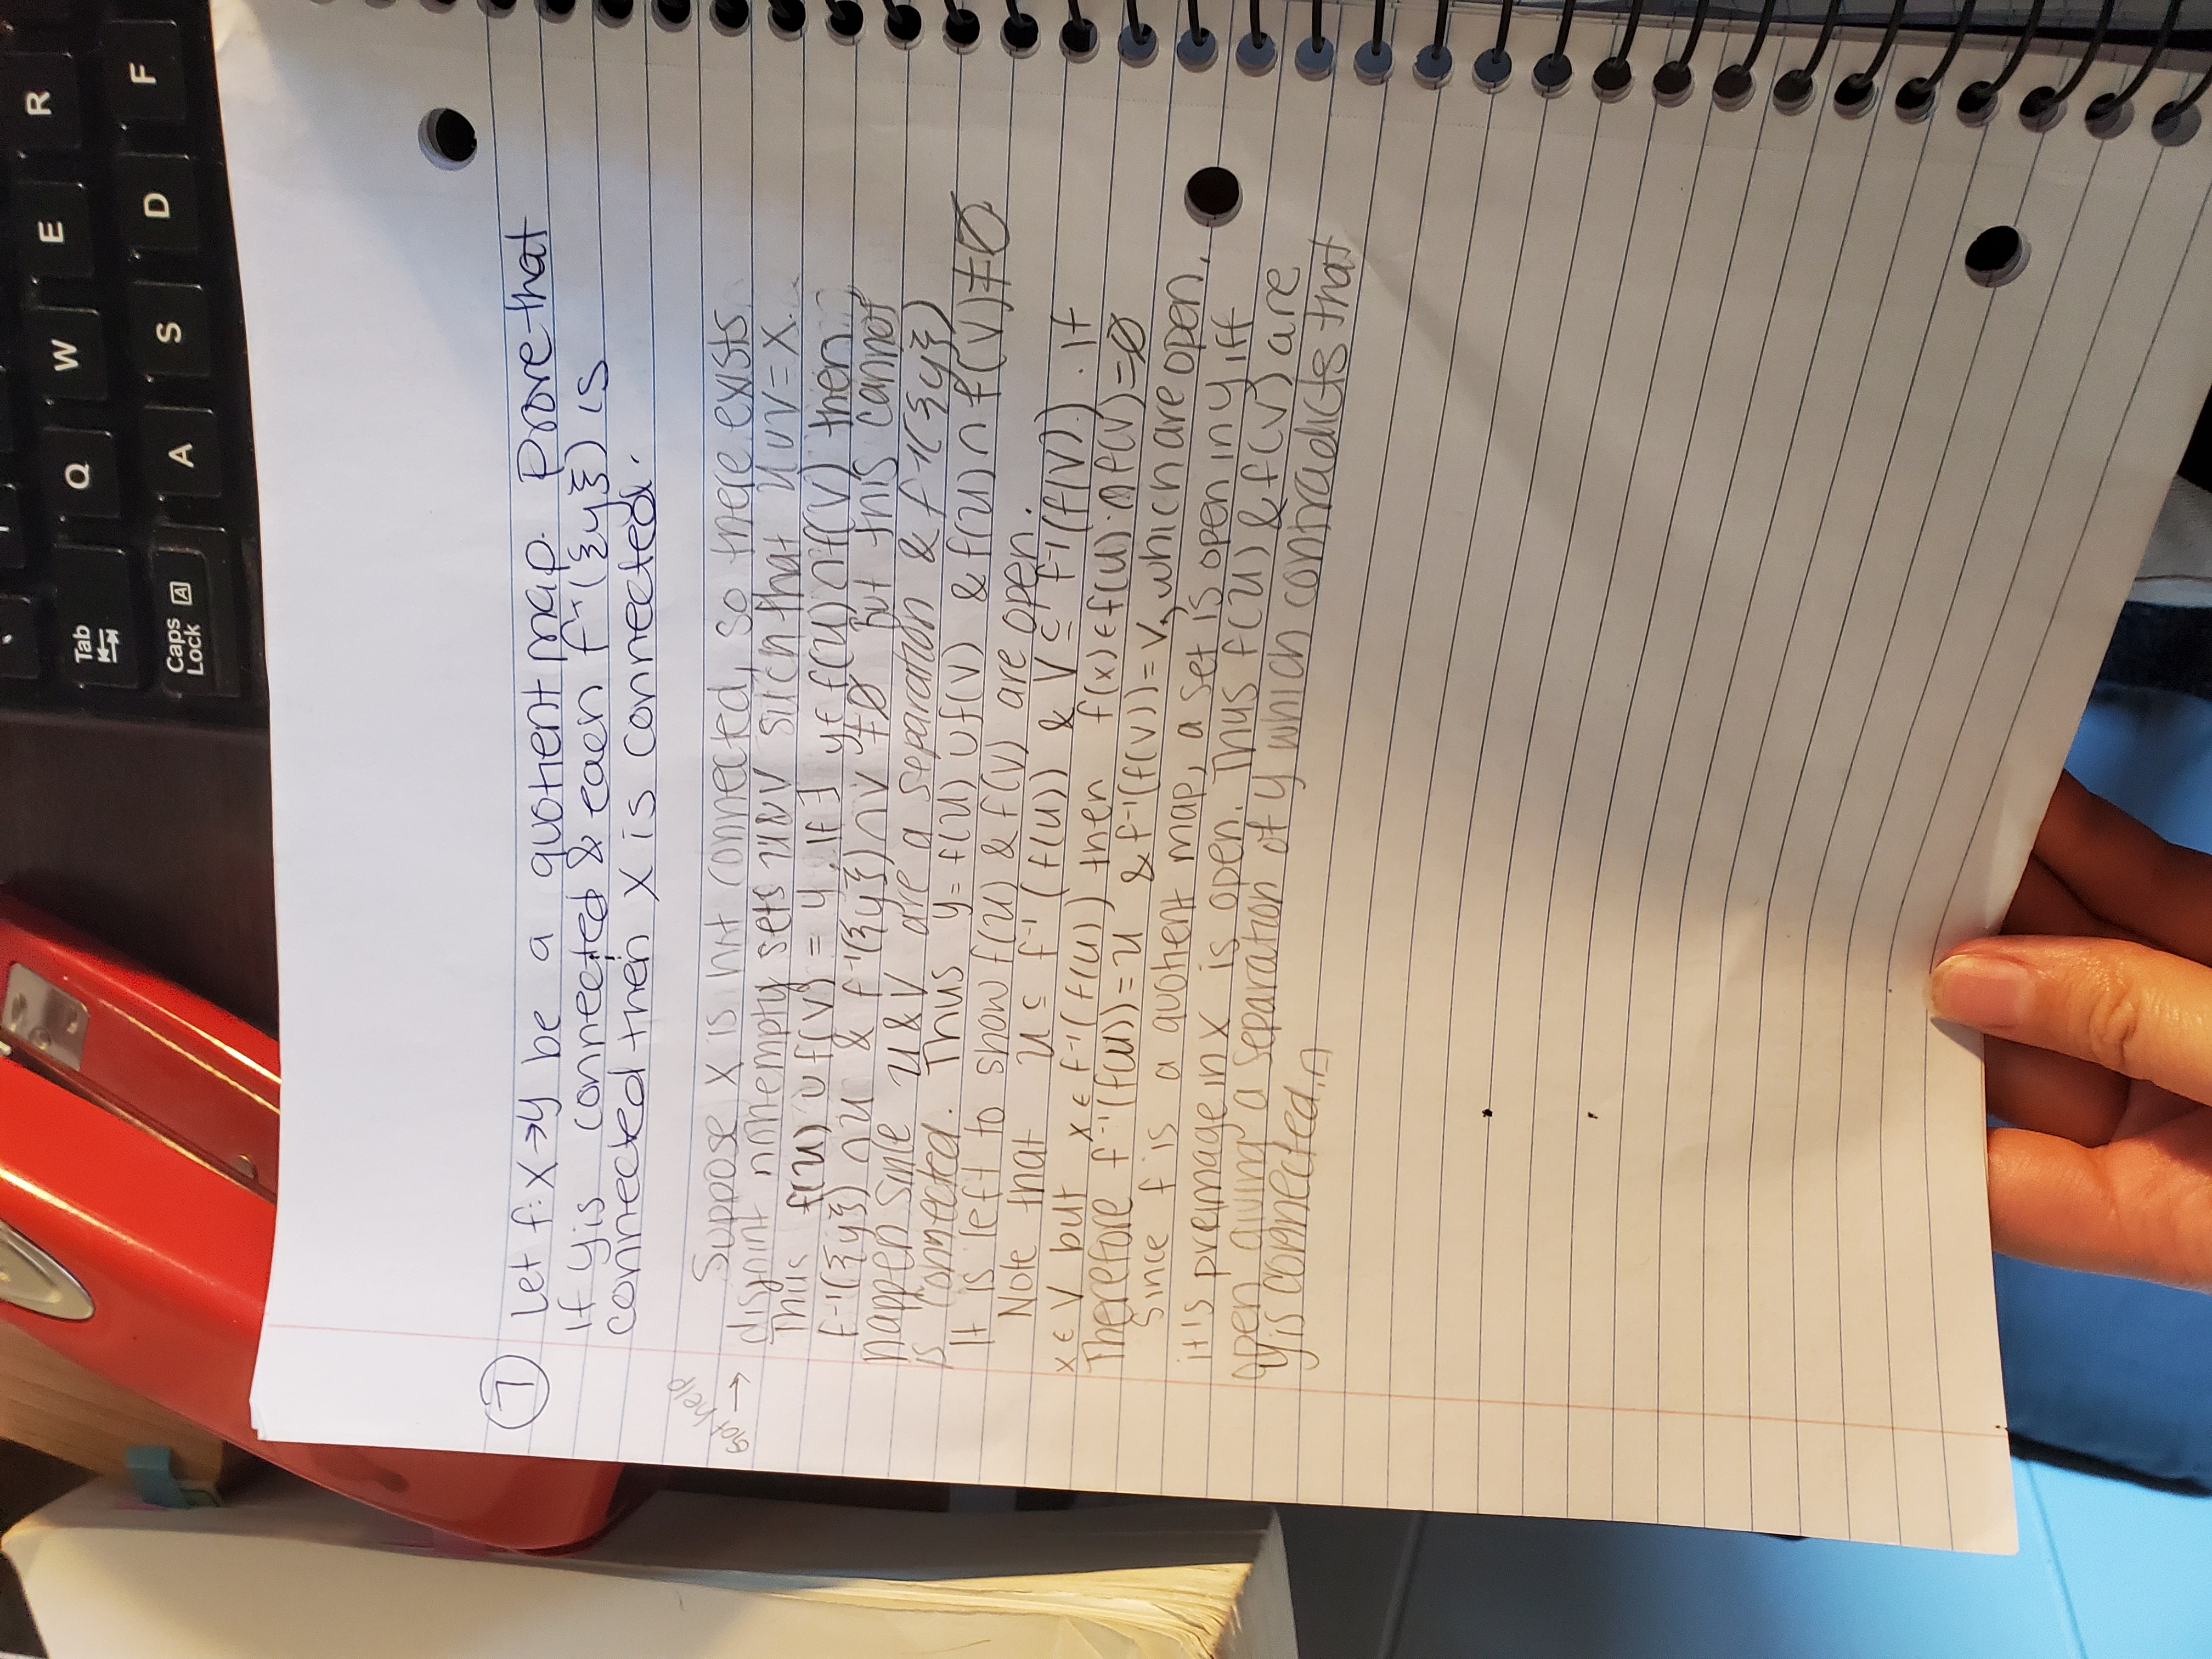 7 Let f: X → Y be a quotient map. Prove that
if Y is connected & each f⁻¹({y}) is
connected then X is connected.
Got help →
Suppose X is not connected, so there exists
disjoint nonempty sets U&V such that U∪V = X.
Thus f(U) ∪ f(V) = Y. If ∃ y ∈ f(U) ∩ f(V) then
f⁻¹({y}) ∩ U & f⁻¹({y}) ∩ V ≠ ∅ but this cannot
happen since U&V are a separation & f⁻¹({y})
is connected. Thus Y = f(U) ∪ f(V) & f(U) ∩ f(V) ≠ ∅
It is left to show f(U) & f(V) are open.
Note that U ⊆ f⁻¹(f(U)) & V ⊆ f⁻¹(f(V)). If
x ∈ V but x ∈ f⁻¹(f(U)) then f(x) ∈ f(U) ∩ f(V) = ∅
Therefore f⁻¹(f(U)) = U & f⁻¹(f(V)) = V, which are open.
Since f is a quotient map, a set is open in Y iff
it's preimage in X is open. Thus f(U) & f(V) are
open giving a separation of Y which contradicts that
Y is connected.
Tab
Q
W
E
R
Caps
Lock
A
A
S
D
F